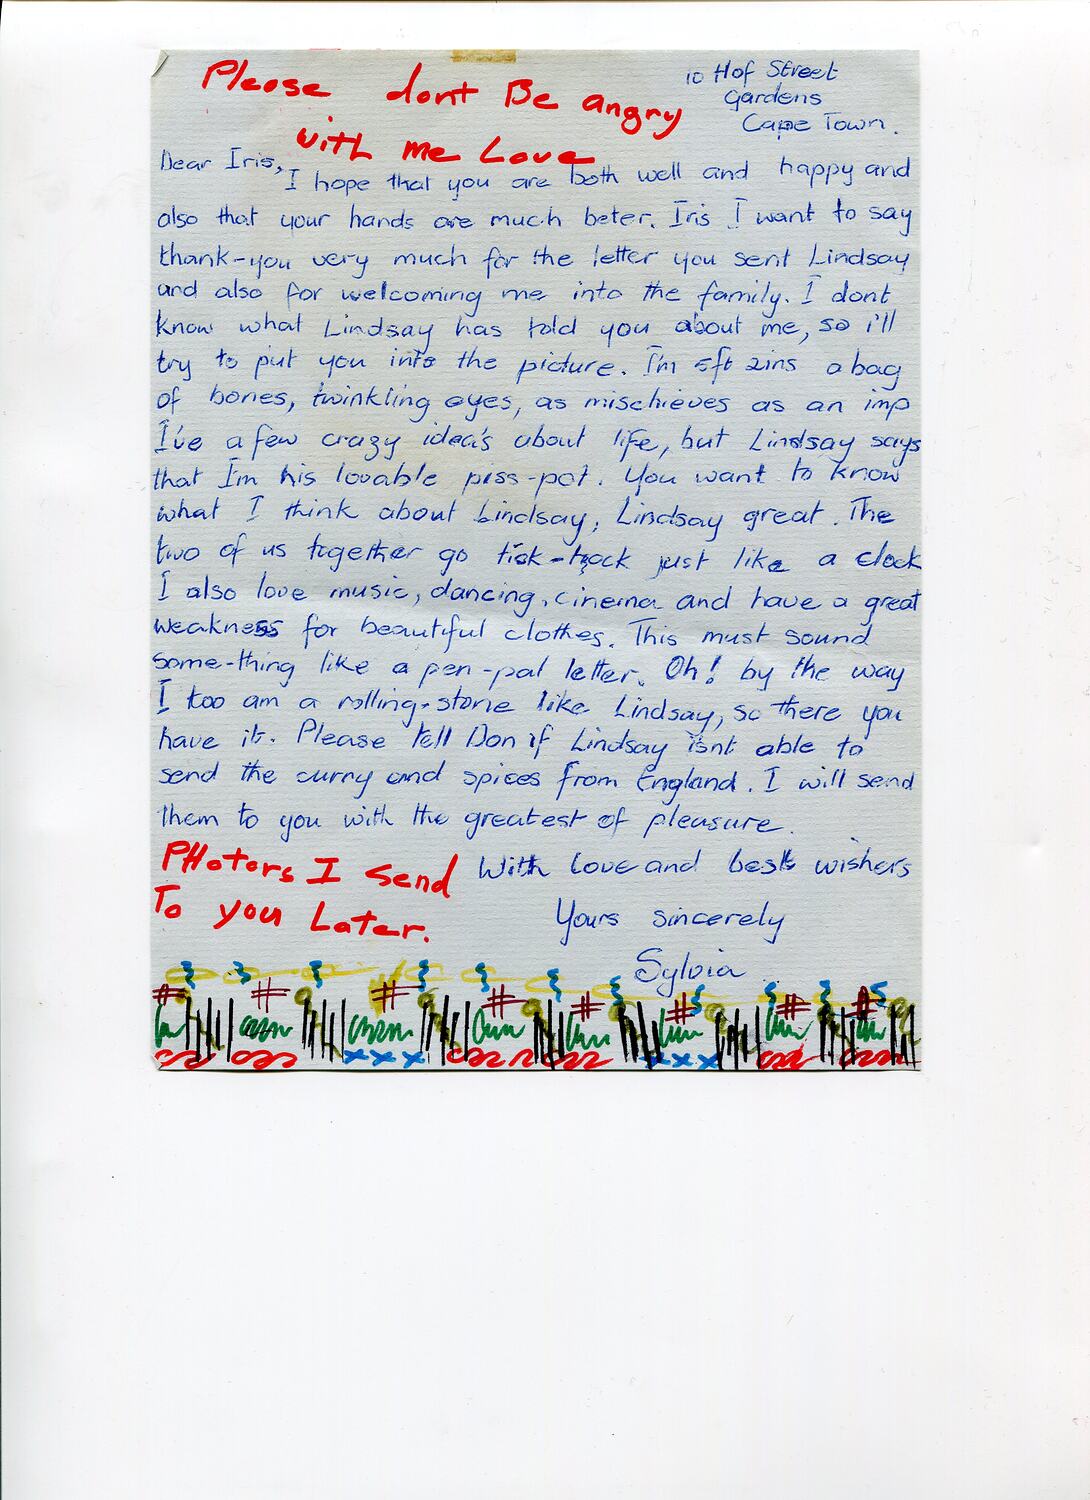 Please dont Be angry
with me Love
10 Hof Street
Gardens
Cape Town.
Dear Iris,
I hope that you are both well and happy and
also that your hands are much beter. Iris I want to say
thank-you very much for the letter you sent Lindsay
and also for welcoming me into the family. I dont
know what Lindsay has told you about me, so i'll
try to put you into the picture. I'm 5ft 2ins a bag
of bones, twinkling eyes, as mischieves as an imp
I've a few crazy idea's about life, but Lindsay says
that I'm his lovable piss-pot. You want to know
what I think about Lindsay, Lindsay great. The
two of us together go tick-tock just like a clock
I also love music, dancing, cinema and have a great
weakness for beautiful clothes. This must sound
some-thing like a pen-pal letter. Oh! by the way
I too am a rolling-stone like Lindsay, so there you
have it. Please tell Don if Lindsay isnt able to
send the curry and spices from England. I will send
them to you with the greatest of pleasure.
With love and best wishers
Yours sincerely
Sylvia
PHotors I send
To you Later.